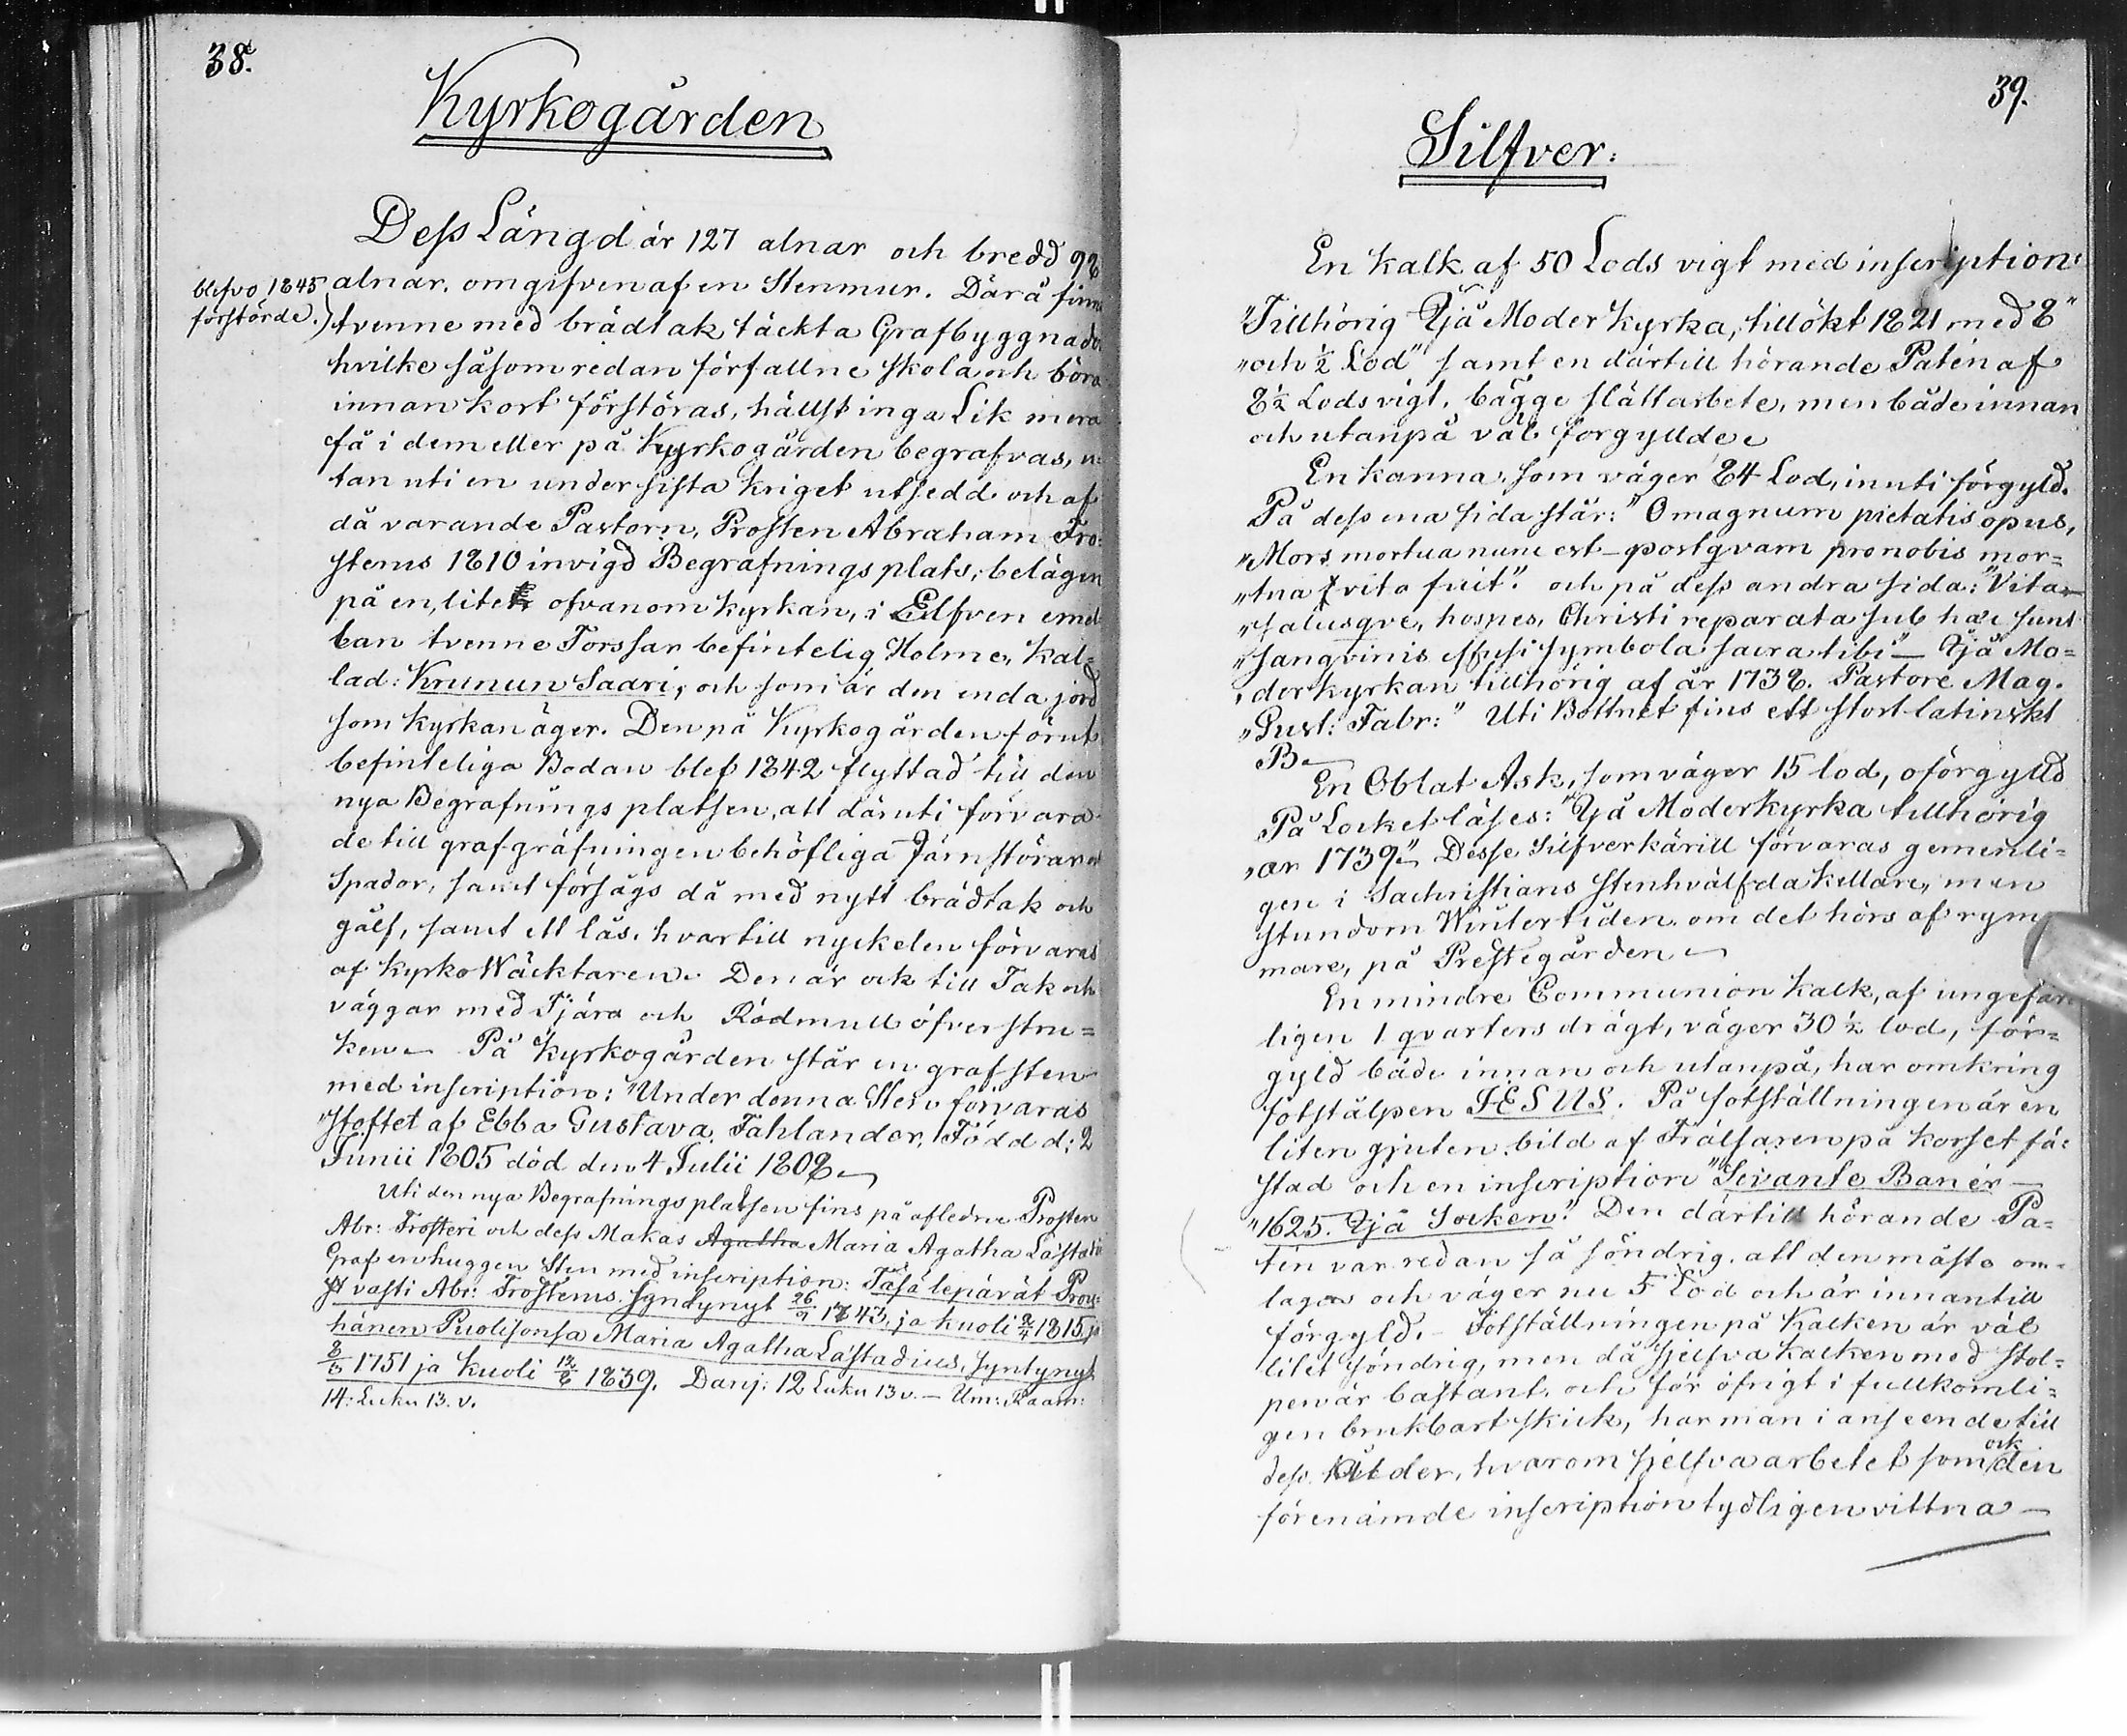 38.
Kyrkogården
Dess Längd är 127 alnar och bredd 98
alnar, omgifven af en Stenmur. Därå finns
blefvo 1845
förstörde.)
tvenne med brädtak täckta Grafbyggnader
hvilke såsom redan förfallne skola och böra
innan kort förstöras, hällst inga Lik mera
få i dem eller på Kyrkogården begrafvas, u:
tan uti en under sista kriget utsedd och af
då varande Pastorn, Prosten Abraham Fro:
sterus 1810 invigd Begrafnings plats, belägen
på en, litet ofvanom kyrkan, i Elfven emel
lan tvenne Forssar befintelig Holme, kal=
lad: Krunun Saari, och som är den enda jord
som Kyrkan äger. Den på Kyrkogården förut
befinteliga Bodan blef 1842 flyttad till den
nya Begrafnings platsen, att däruti förvara
de till grafgräfningen behöfliga Järnstörar och
Spador, samt försågs då med nytt brädtak och
gålf, samt ett lås, hvartill nyckelen förvaras
af Kyrko Wäcktaren. Den är ock till Tak och
väggar med Tjära och Rödmull öfverstru=
ken. På Kyrkogården står en grafsten
med inscription: "Under denna Sten förvaras
"Stoftet af Ebba Gustava Fahlander, Född d: 2
Junii 1805 död den 4 Julii 1808.
Uti den nya Begrafnings platsen fins på afledne Prosten
Abr: Frosteri och dess Makas Agatha Maria Agatha Lästadii
Graf en huggen Sten med inscription: Täsä lepäävät Prov:
st vasti Abr: Frosterus Syndynyt 26/9 1743, ja kuoli 2/4 1815, ja
hänen Puolisonsa Maria Agatha Lästadius, Syntynyt
8/3 1751 ja kuoli 12/8 1839. Danj: 12 Luku 13 v. – Um: Raam:
14: Luku 13. v.
39.
Silfver:
En kalk af 50 Lods vigt med inscription:
"Tillhörig Ijå Moder kyrka, tillökt 1821 med 8"
"och ½ Lod" samt en därtill hörande Patén af
8½ Lods vigt, bägge slättarbete, men både innan
och utanpå väl förgyllde.
En kanna, som väger 84 Lod, inuti förgyld.
På dess ena sida står: "O magnum pietatis opus,
"Mors mortua nunc est – postqvam pro nobis mor=
"tua vita fuit". och på dess andra sida: "Vita
"salusqve, hospes, Christi reparata sub hæc sunt
"sangvinis effusi symbola sacra tibi" – Ijå Mo=
"derkyrkan tillhörig af år 1738. Pastore Mag.
"Gust: Fabr:" Uti Bottnet fins ett stort latinskt
B.
En Oblat Ask, som väger 15 lod, oförgylld
På Locket läses: "Ijå Moderkyrka tillhörig
"ar 1739." Desse Silfverkärill förvaras gemenli=
gen i Sachristians stenhvälfda kellare, men
stundom Wintertiden, om det hörs af rym
mare, på Prestegården.
En mindre Communion Kalk, af ungefär
ligen 1 qvarters drägt, väger 30½ lod, för=
gyld både innan och utanpå, har omkring
fotstålpen JESUS. På fotställningen är en
liten gjuten bild af Frälsaren på korset fä:
stad och en inscription "Svante Banér –
"1625. Ijå Socken". Den därtill hörande Pa=
tén var redan så söndrig, att den måste om=
lagas och väger nu 5 Lod och är innantill
förgyld. – Fotställningen på Kalken är väl
litet söndrig, men då sjelfva kalken med stol=
pen är bastant, och för öfrigt i fullkomli=
gen brukbart skick, har man i anseende till
dess ålder, hvarom sjelfva arbetet som ock den
förenämde inscription tydligen vittna –